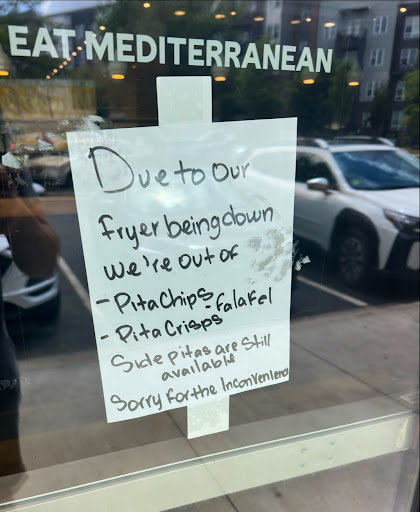 EAT MEDITERRANEAN
Due to our
fryer being down
we're out of
- Pita Chips
- Falafel
- Pita Crisps
Side pitas are still
available
Sorry for the Inconvenienc